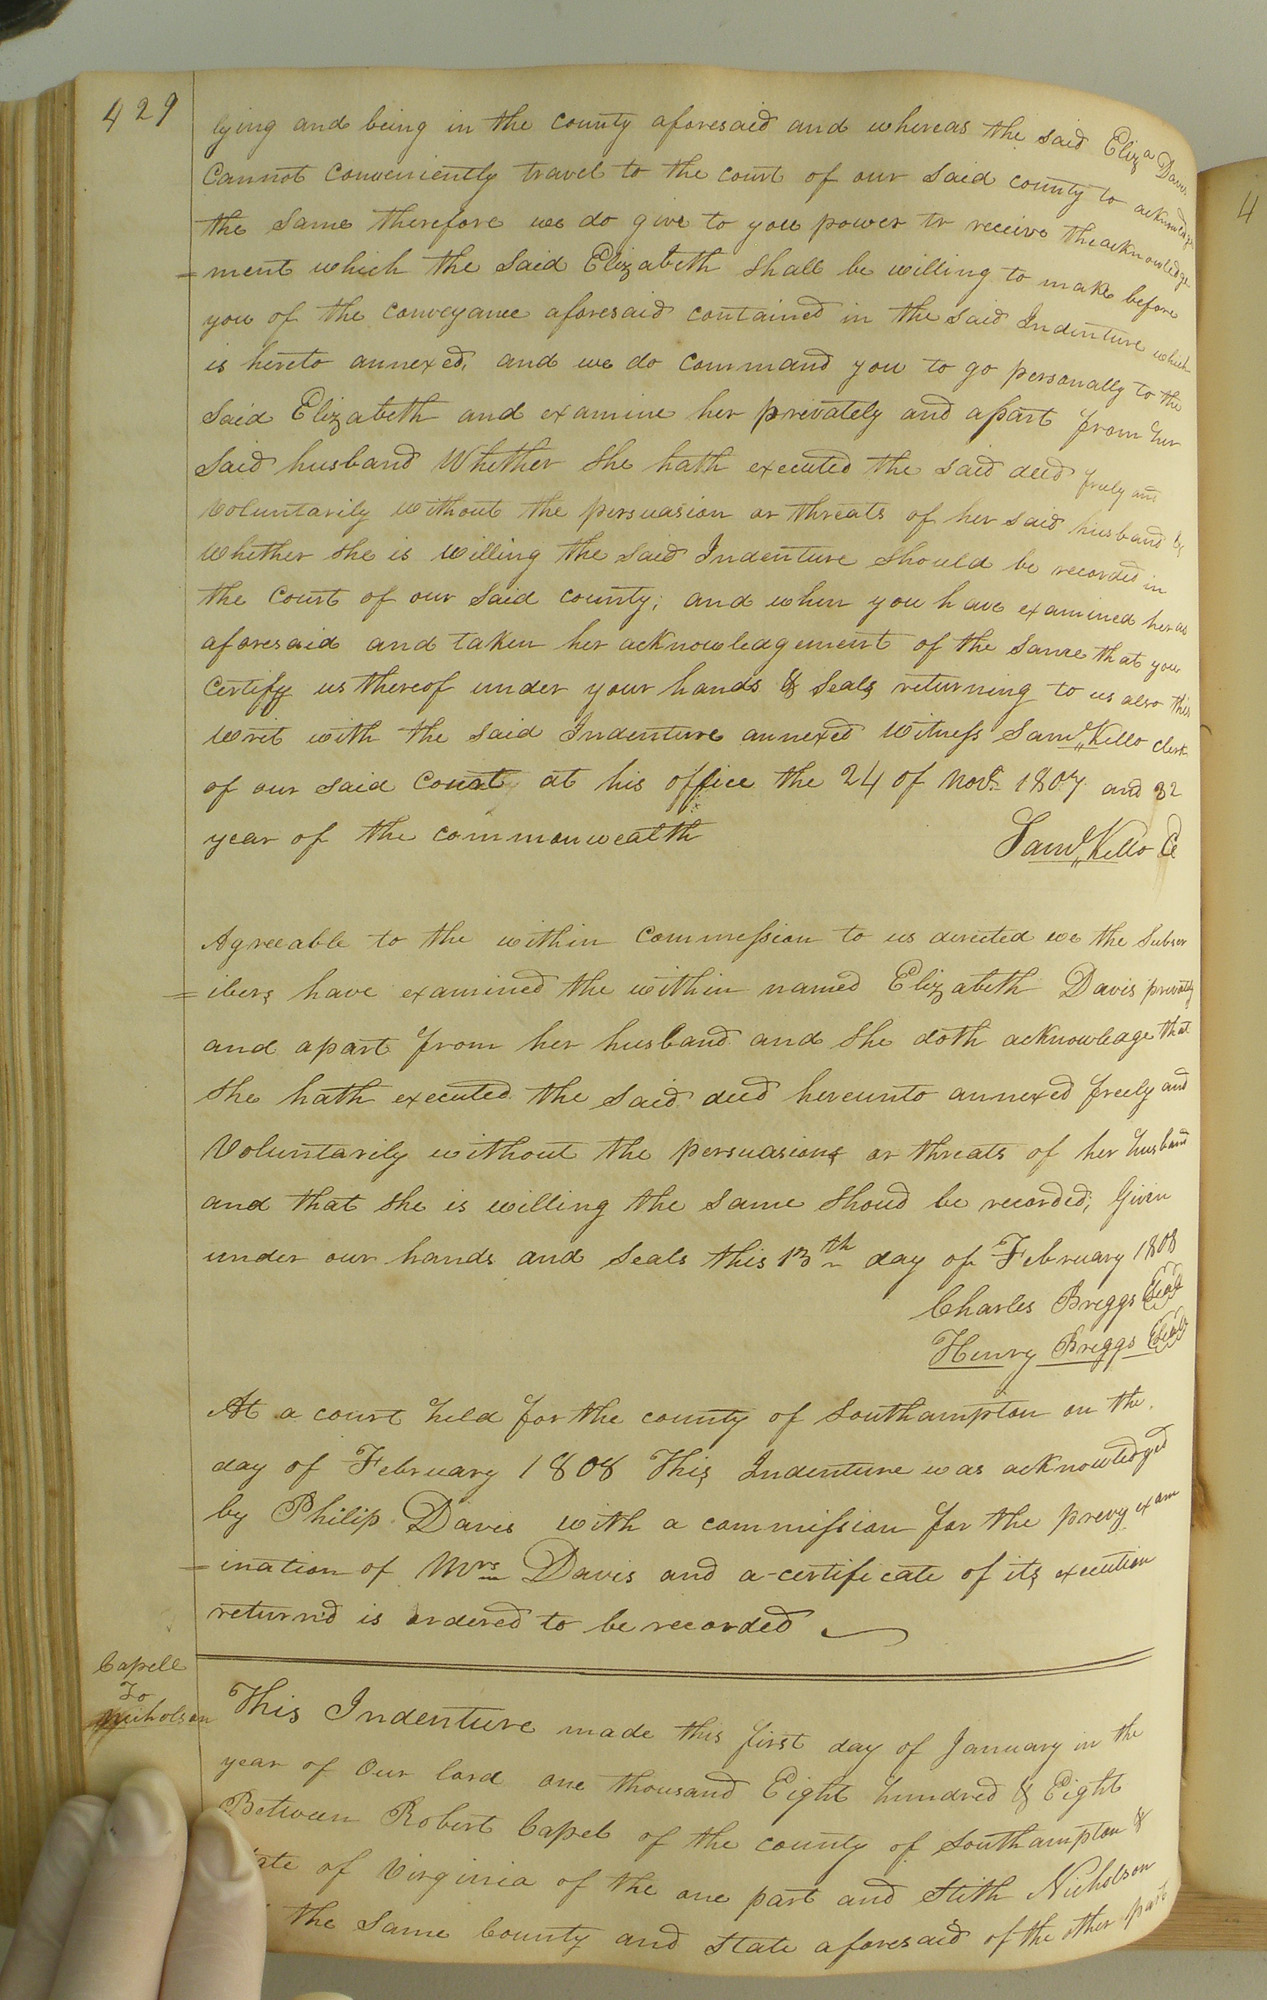 429
lying and being in the county aforesaid and whereas the said Eliza Davis
Cannot Conveniently travel to the court of our said county to acknowledge
the same therefore we do give to you power to receive the acknowledge
=ment which the said Elizabeth shall be willing to make before
you of the conveyance aforesaid contained in the said Indenture which
is hereto annexed, and we do command you to go personally to the
said Elizabeth and examine her privately and apart from her
said husband Whether she hath executed the said deed freely and
voluntarily without the persuasion or threats of her said husband &
whether she is willing the said Indenture should be recorded in
the Court of our said county; and when you have examined her as
aforesaid and taken her acknowledgement of the same that you
certify us thereof under your hands & seals returning to us also this
writ with the said Indenture annexed Witness Saml, Kello clerk
of our said Court at his office the 24 of Novr. 1807 and 32
year of the commonwealth
Saml, Kello Cl
Agreeable to the within commission to us directed we the Subscr
=ibers have examined the within named Elizabeth Davis privately
and apart from her husband and she doth acknowledge that
she hath executed the said deed hereunto annexed freely and
Voluntarily without the persuasions or threats of her husband
and that she is willing the same shoud be recorded; Given
under our hands and seals this 13th day of February 1808
Charles Briggs Seal
Henry Briggs Seal
At a court held for the county of Southampton on the.
day of February 1808 This Indenture was acknowledged
by Philip Daves with a commission for the prevy exam
=ination of Mrs Davis and a certificate of its execution
return'd is ordered to be recorded
Capell
To
Nicholson
This Indenture made this first day of January in the
year of Our lord one thousand Eight hundred & Eight
Between Robert Capel of the county of Southampton &
State of Virginia of the one part and Stith Nicholson
the same County and state aforesaid of the other part
4